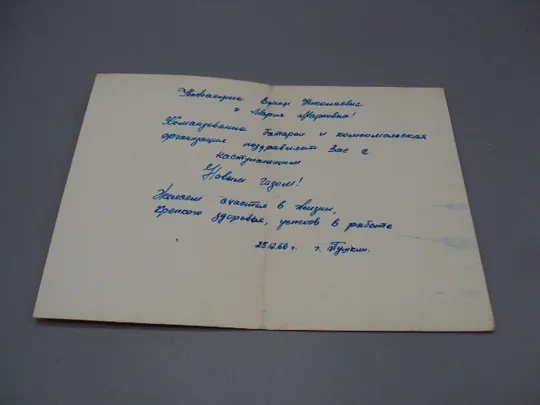 Уважаемые Николаевич
и Мария Марковна!
Командование батареи и комсомольская
организация поздравляют Вас с
наступающим
Новым годом!
Желаем счастья в жизни,
крепкого здоровья, успехов в работе
25.12.66 г. г.